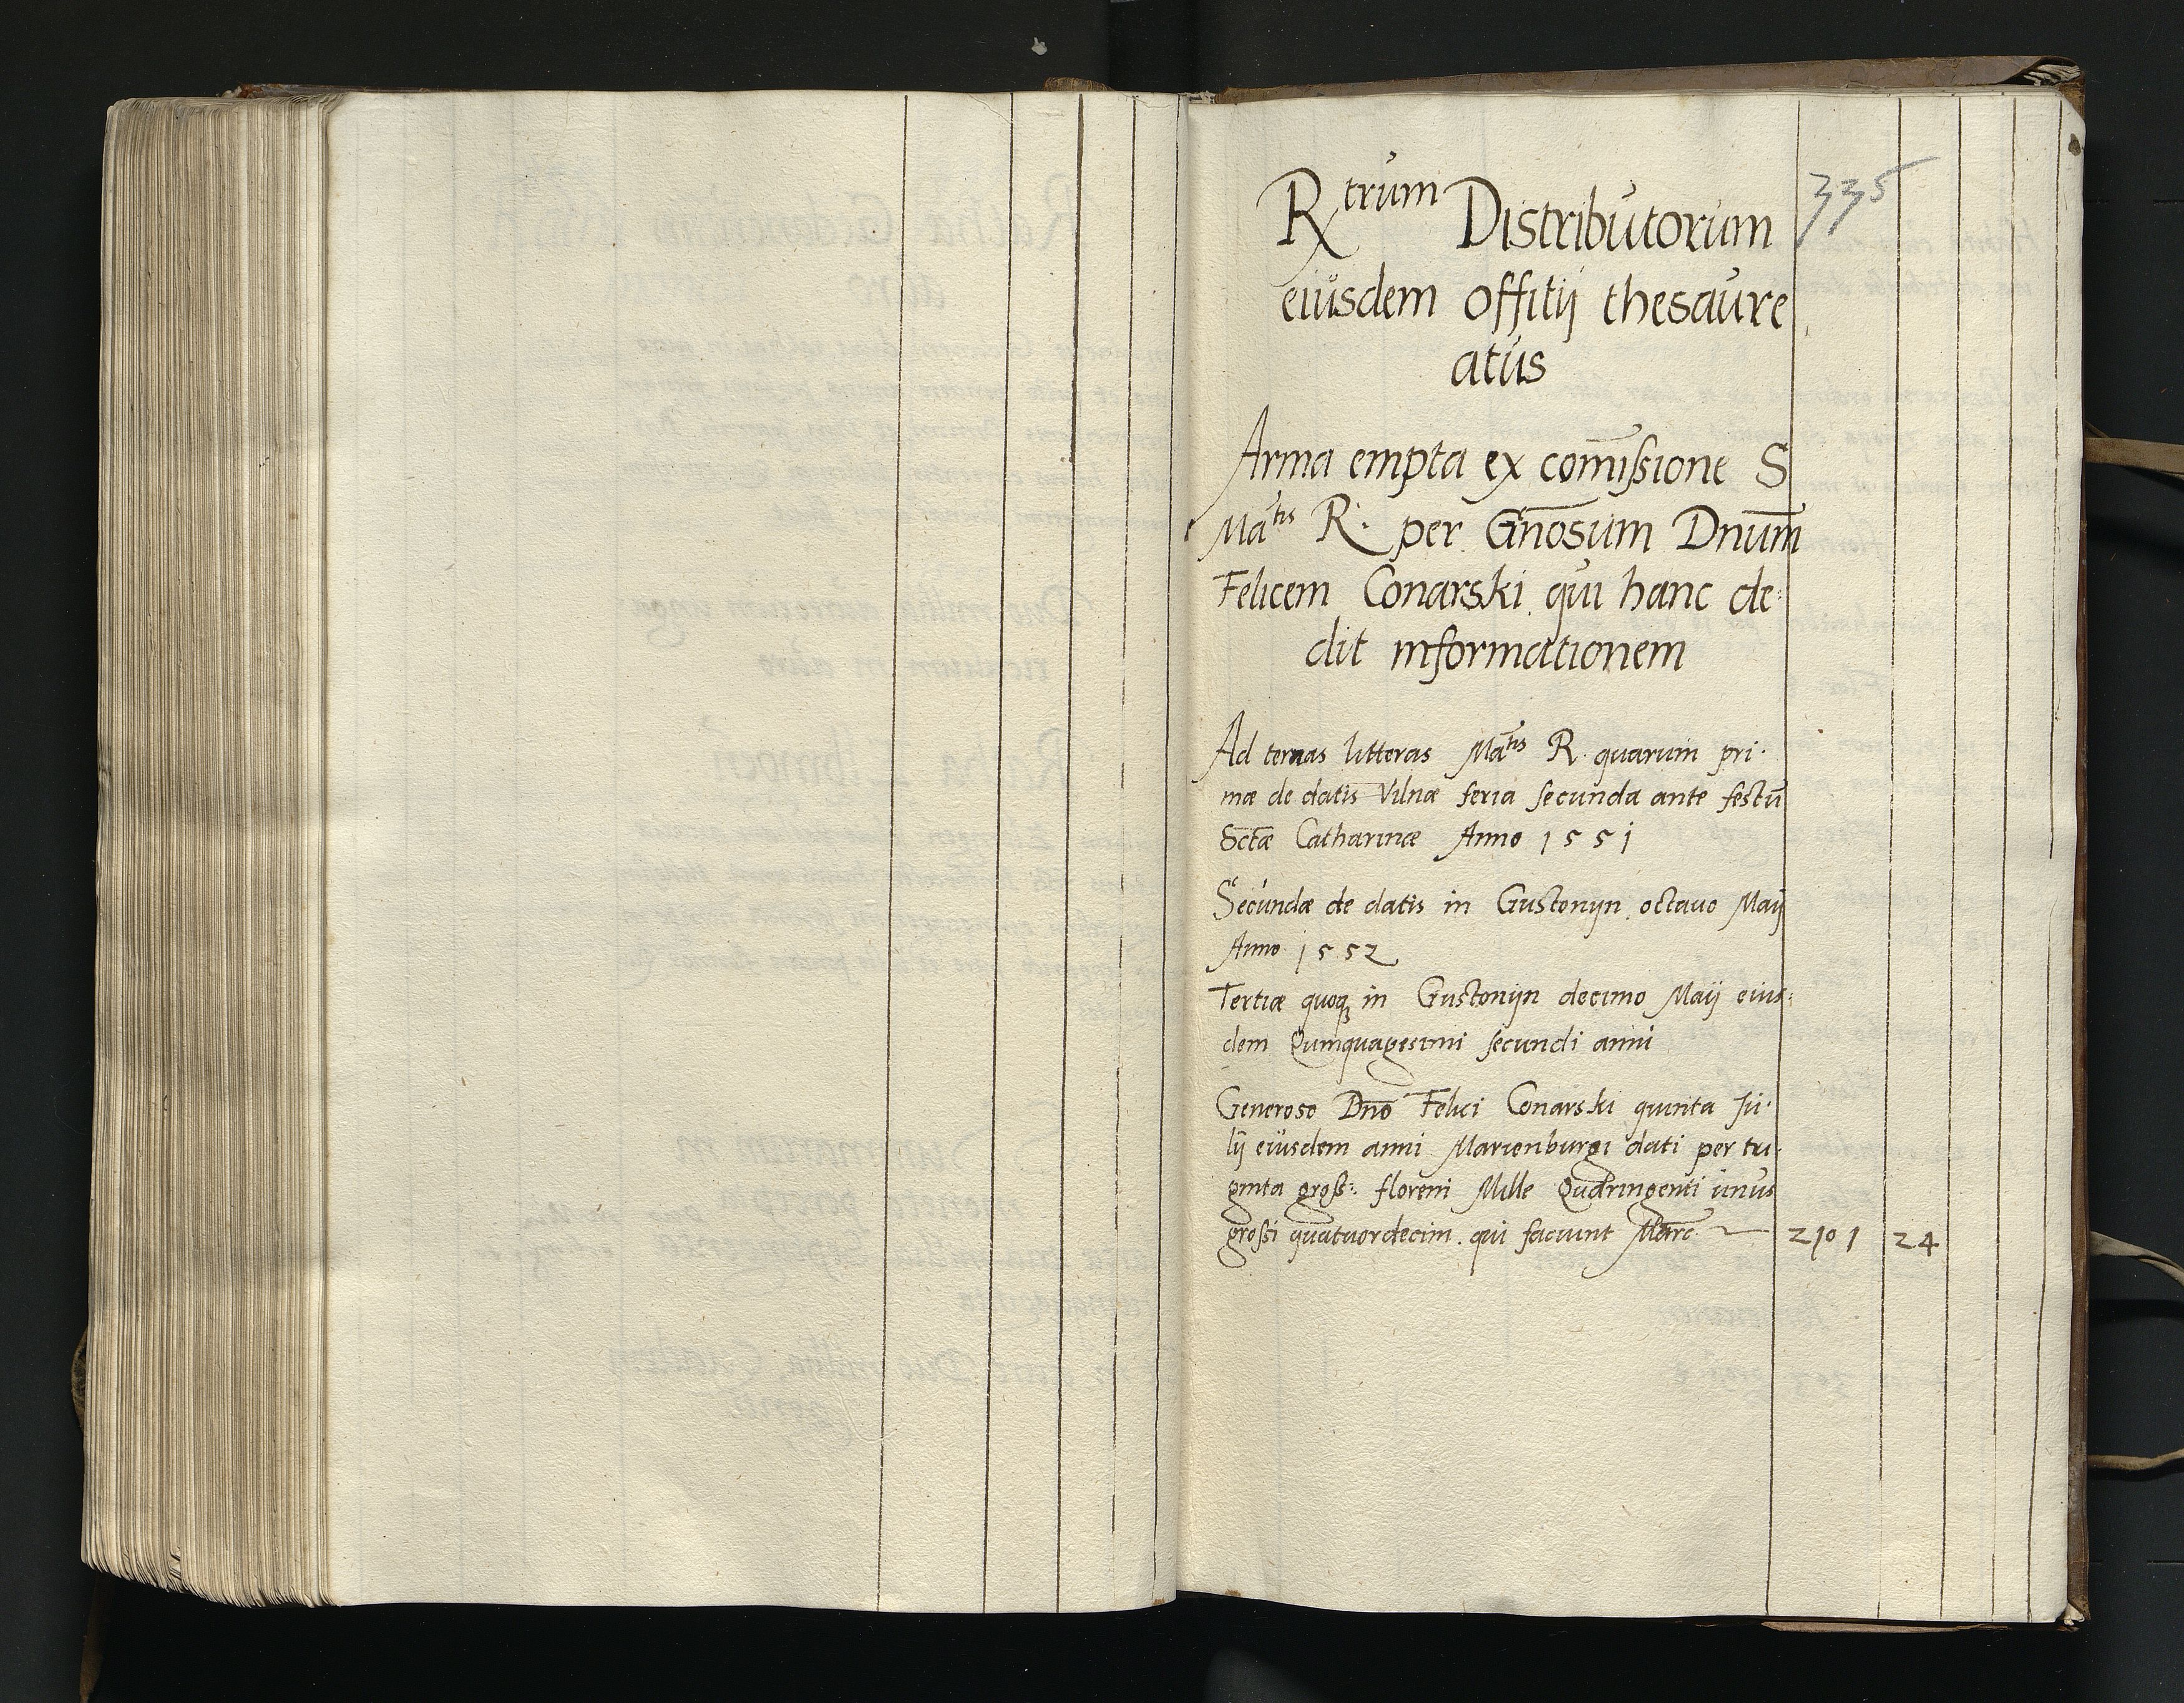 335
Rxtrum Distributorum
eiusdem offitij thesaure
atus
Arma empta ex comißione S
Mātis R. per Gn̄osum Dnum̄
Felicem Conarski qui hanc de:
dit informationem
Ad ternas litteras Mātis R quarum pri.
mæ de datis Vilnæ feria secunda ante festū
Sctæ Catharinæ Anno 1551
Secundæ de datis in Gustonijn octauo Maij
Anno 1552
Tertiæ quoqȝ in Gustonijn decimo Maij eius:
dem Quinquagesimi secundi anni
Generoso Dnō Felici Conarski quinta Ju.
lij eiusdem anni Marienburgi dati per tri.
ginta groß: floreni Mille Quadringenti unus
großi quatuordecim. qui faciunt Marc̄ 2101 24